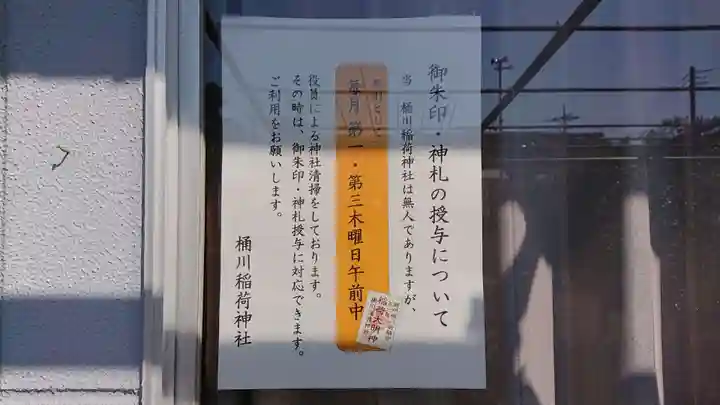 御朱印・神札の授与について
当 桶川稲荷神社は無人でありますが、
毎月 第一・第三木曜日午前中
役員による神社清掃をしております。
その時は、御朱印・神札授与に対応できます。
ご利用をお願いします。
桶川稲荷神社
稲荷大明神